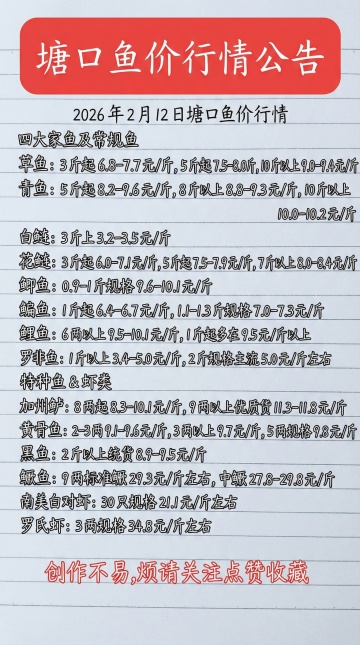 塘口鱼价行情公告
2026年2月12日塘口鱼价行情
四大家鱼及常规鱼
草鱼:3斤起6.8-7.7元/斤,5斤起7.5-8.0斤,10斤以上9.0-9.4元/斤
青鱼:5斤起8.2-9.6元/斤,8斤以上8.8-9.3元/斤,10斤以上
10.0-10.2元/斤
白鲢:3斤上3.2-3.5元/斤
花鲢:3斤起6.0-7.1元/斤,5斤起7.5-7.9元/斤,7斤以上8.0-8.4元/斤
鲫鱼:0.9-1斤规格9.6-10.1元/斤
鳊鱼:1斤起6.4-6.7元/斤,1.1-1.3斤规格7.0-7.3元/斤
鲤鱼:6两以上9.5-10.1元/斤,1斤起多在9.5元/斤以上
罗非鱼:1斤以上3.4-5.0元/斤,2斤规格主流5.0元/斤左右
特种鱼&虾类
加州鲈:8两起8.3-10.1元/斤,9两以上优质货11.3-11.8元/斤
黄骨鱼:2-3两9.1-9.6元/斤,3两以上9.7元/斤,5两规格9.8元/斤
黑鱼:2斤以上统货8.9-9.5元/斤
鳜鱼:9两标准鳜29.3元/斤左右,中鳜27.8-29.8元/斤
南美白对虾:30只规格21.1元/斤左右
罗氏虾:3两规格34.8元/斤左右
创作不易,烦请关注点赞收藏